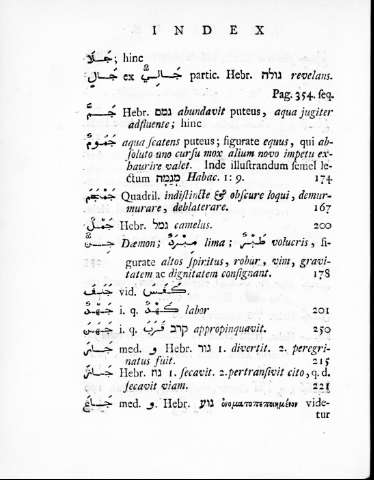 INDEX
جَلَا; hine
جَالٍ ex جَالِيٌ partic. Hebr. גולה revelans.
Pag. 354. seq.
جَمَّ Hebr. גמם abundavit puteus, aqua jugiter
adfluente; hinc
جَمُومٌ aqua scatens puteus; figurate equus, qui ab-
soluto uno cursu mox alium novo impetu ex-
haurire valet. Inde illustrandum semel le-
ctum מגמה Habac. 1: 9. 174
جَمْجَمَ Quadril. indistincte & obscure loqui, demur-
murare, deblaterare. 167
جَمَلٌ Hebr. גמל camelus. 200
جِنٌّ Dæmon; مِبْرَدٌ lima; طَيْرٌ volucris, fi-
gurate altos spiritus, robur, vim, gravi-
tatem ac dignitatem consignant. 178
جَنَفَ vid.
جَهْدٌ i. q. كَهْدٌ labor 201
جَهَنَ i. q. قَرُبَ קרב appropinquavit. 250
جَارَ med. و Hebr. גור 1. divertit. 2. peregri-
natus fuit. 215
جَازَ Hebr. גוז 1. secavit. 2. pertransivit cito, q. d.
secavit viam. 221
جَاعَ med. و Hebr. גוע ὀνοματοπεποιημένον vide-
tur